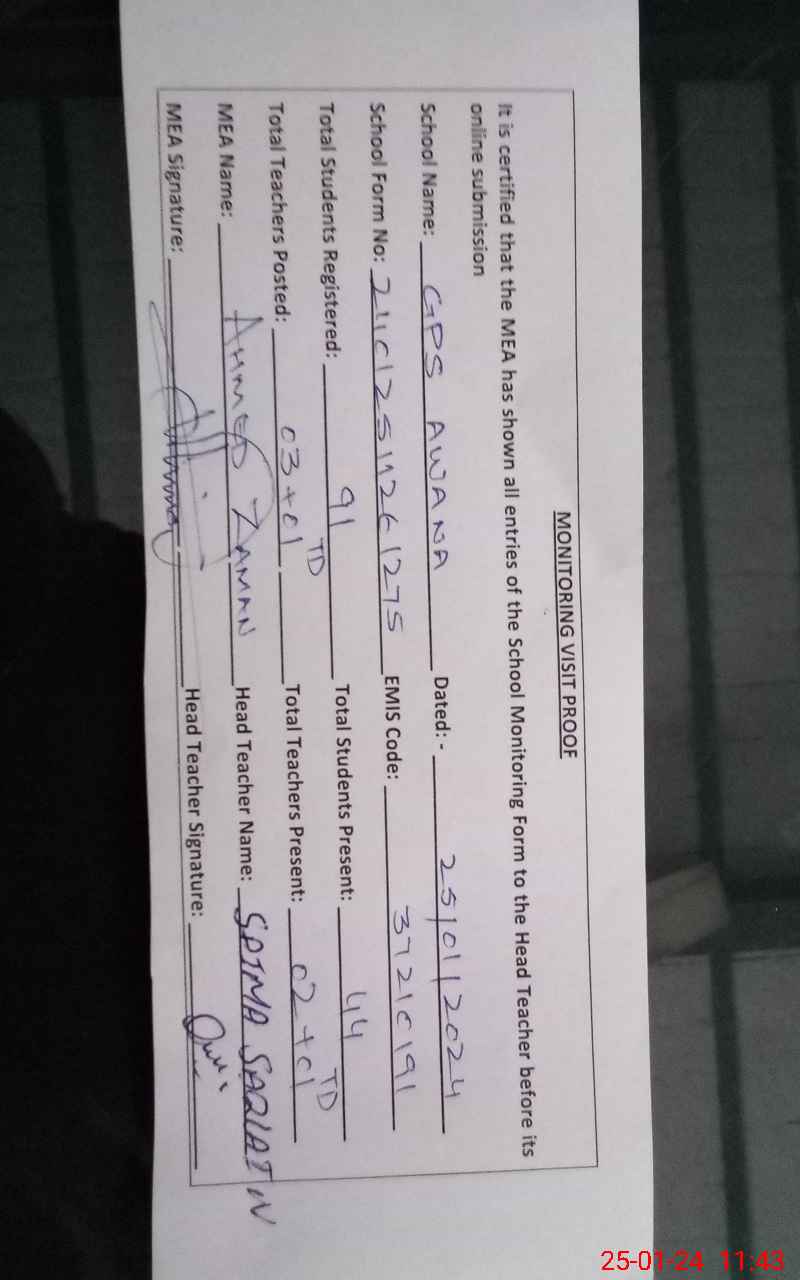 MONITORING VISIT PROOF
It is certified that the MEA has shown all entries of the School Monitoring Form to the Head Teacher before its
online submission
School Name: GPS AWANA Dated: - 25/01/2024
School Form No: EMIS Code: 37210191
Total Students Registered: 91 Total Students Present: 44
Total Teachers Posted: 03+01 TD Total Teachers Present: 02+01 TD
MEA Name: AHMED ZAMAN Head Teacher Name:
MEA Signature: Head Teacher Signature:
25-01-24 11:43